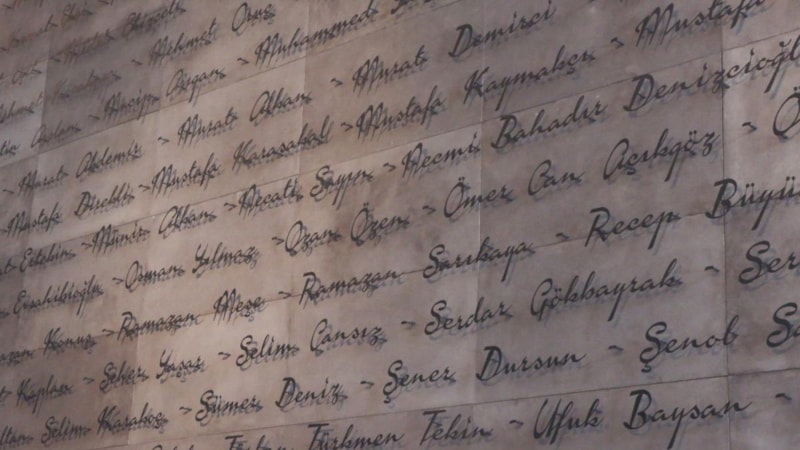 Mehmet Oruç
Muhammed
Murat Akdemir - Murat Alkan - Murat Demirci
Mustafa Direkli - Mustafa Karasakal - Mustafa Kaymakçı - Mustafa
Ertekin - Münir Alkan - Necati Sayın - Necmi Bahadır Denizcioğlu
Osman Yılmaz - Ozan Özen - Ömer Can Açıkgöz - Ö
Ramazan Meşe - Ramazan Sarıkaya - Recep Büyü
Kaplan - Seher Yaşar - Selim Cansız - Serdar Gökbayrak - Ser
Selim Karakoç - Sümer Deniz - Şener Dursun - Şenol Sa
Türkmen Tekin - Ufuk Baysan -